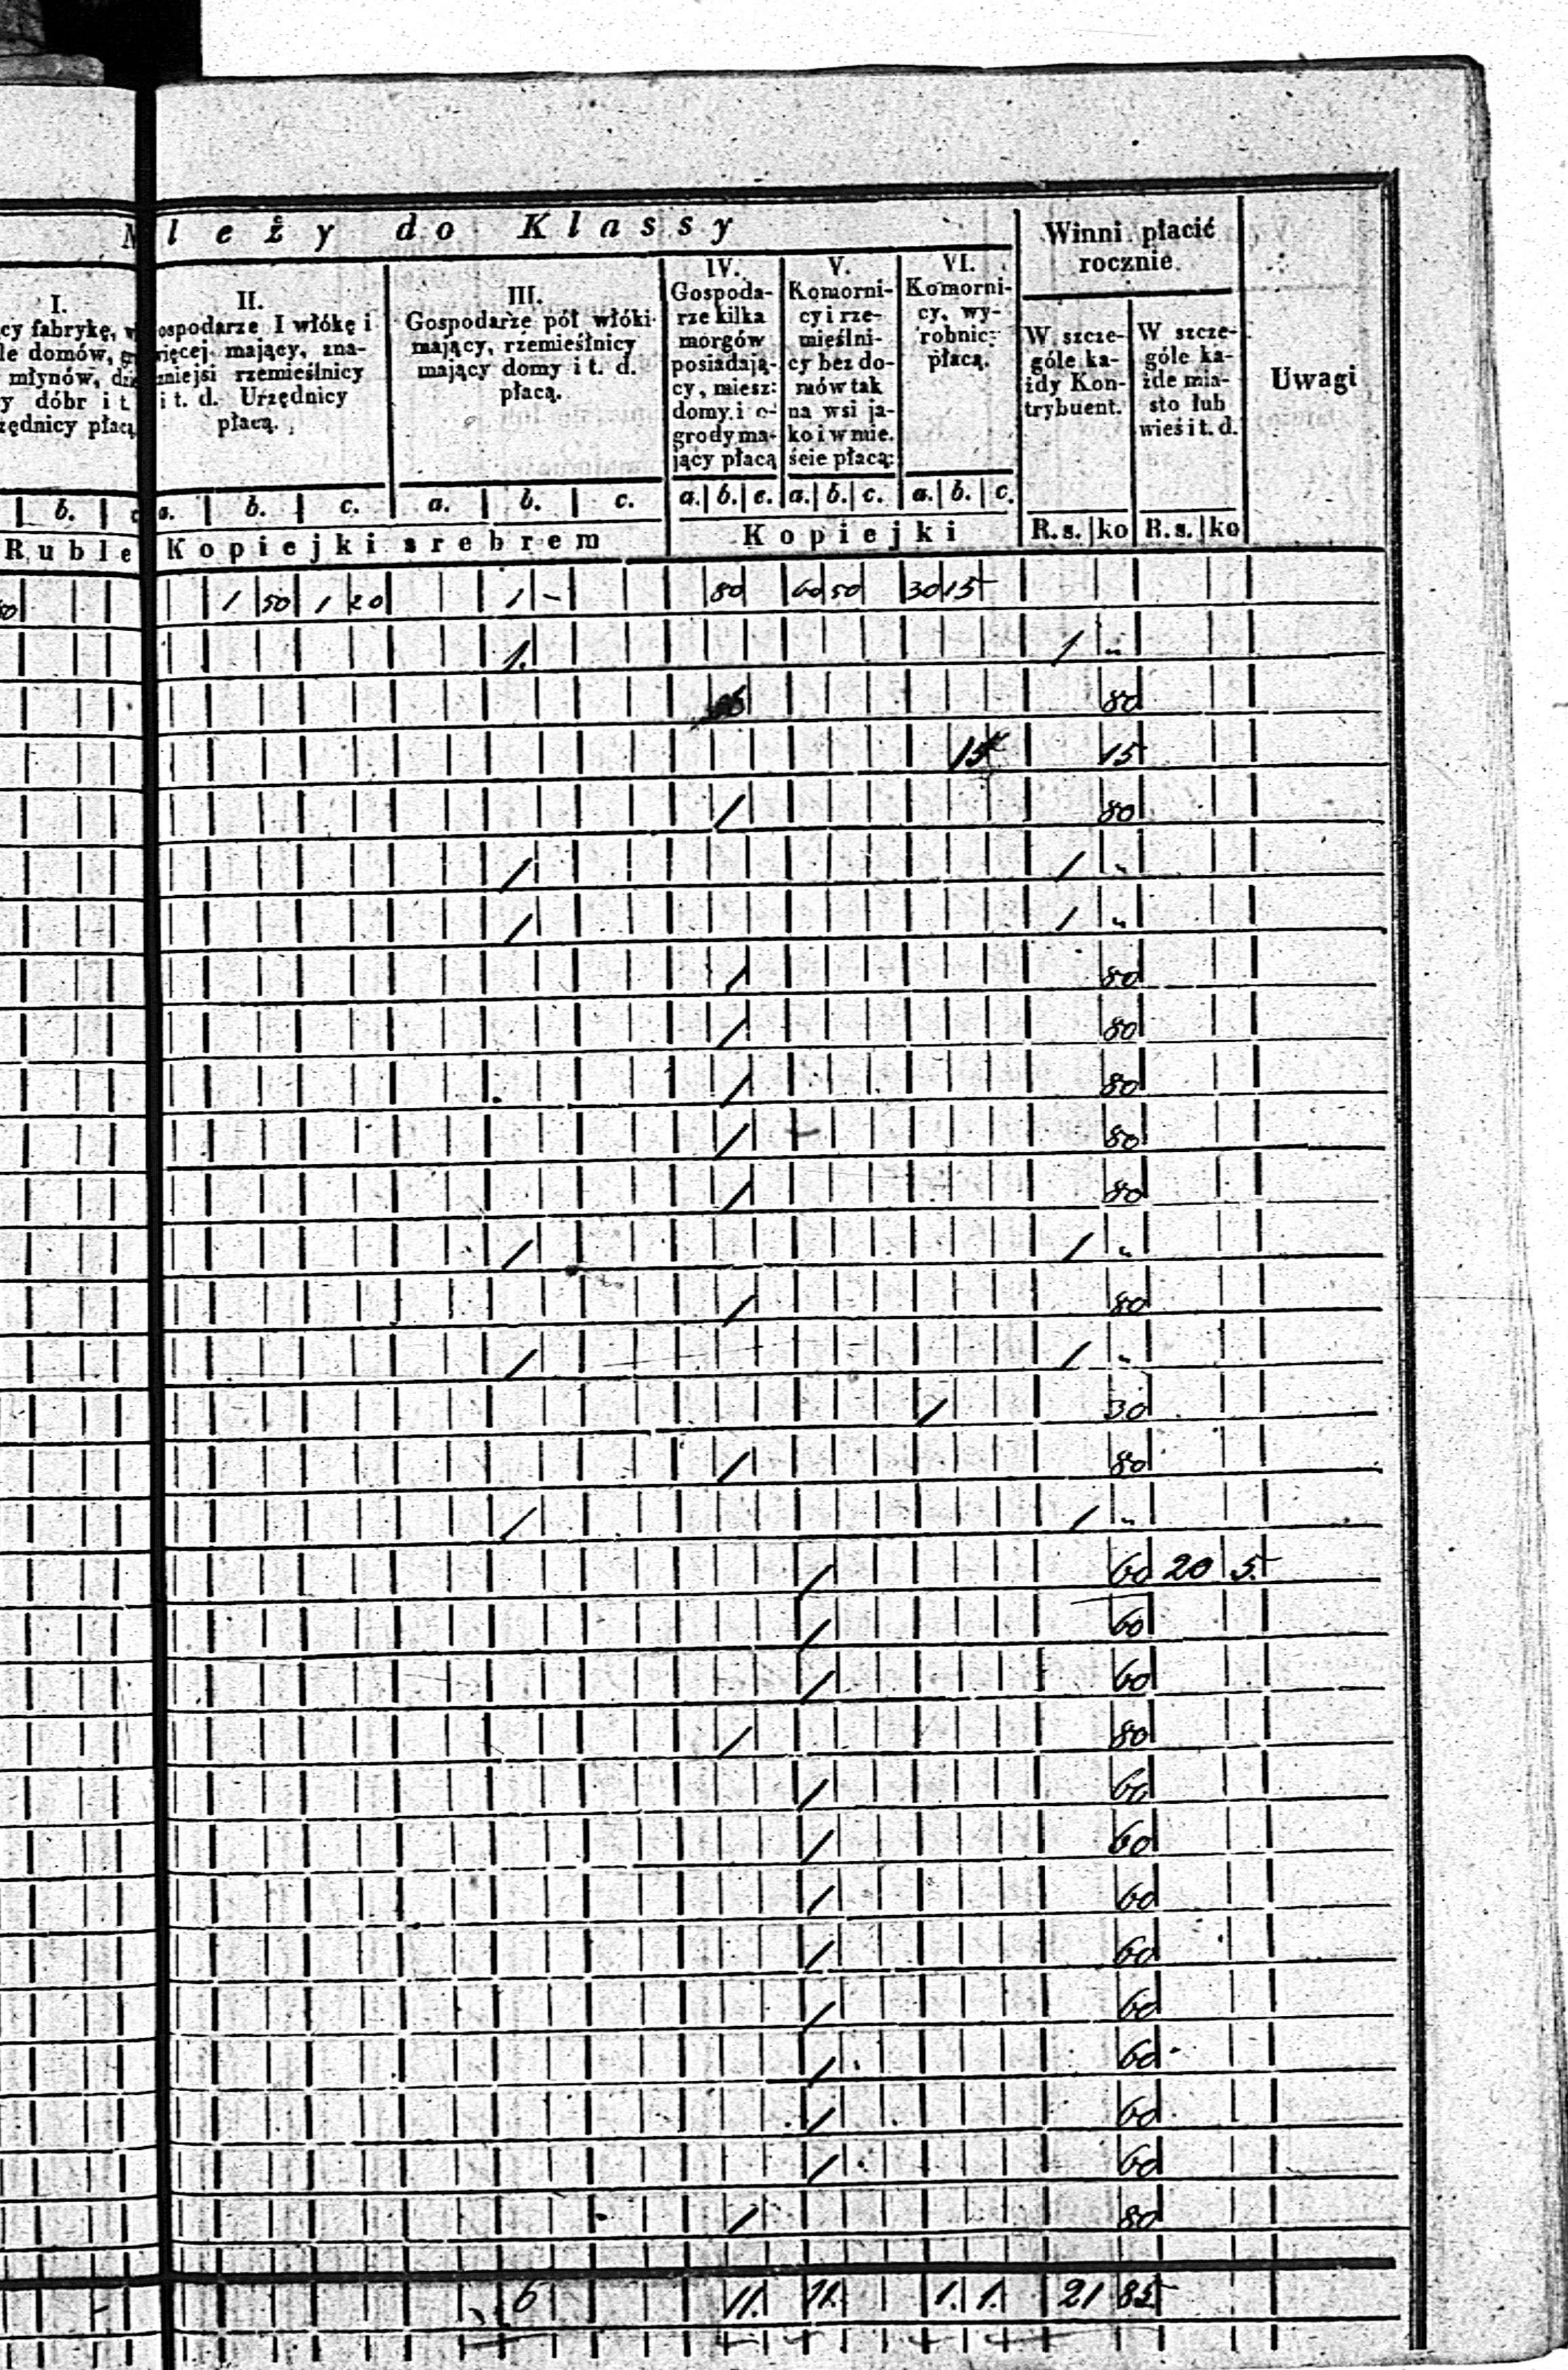 l e ż y do Klassy
Winni płacić
rocznie.
Uwagi
I.
cy fabrykę,
le domów,
młynów,
y dóbr i t
zędnicy płacą
II.
ospodarze I włókę i
więcej mający, zna-
zniejsi rzemieślnicy
i t. d. Urzędnicy
płacą.
III.
Gospodarze pół włóki
mający, rzemieślnicy
mający domy i t. d.
płacą.
IV.
Gospoda-
rze kilka
morgów
posiadają-
cy, miesz:
domy i o-
grody ma-
jący płacą
V.
Komorni-
cy i rze-
mieślni-
cy bez do-
mów tak
na wsi ja-
ko i w mie.
ście płacą:
VI.
Komorni-
cy, wy-
robnic:
płacą.
W szcze-
góle ka-
żdy Kon-
trybuent.
W szcze-
góle ka-
żde mia-
sto lub
wieś i t. d.
b. a. b. c. a. b. c. a. b. c. a. b. c. a. b. c.
Ruble Kopiejki srebrem Kopiejki R.s. ko R.s. ko
1 50 1 20 1 - 80 60 50 30 15
1. 1 "
80
15 15
/ 80
/ / "
/ / "
/ 80
/ 80
/ 80
/ 80
/ 80
/ / "
/ 80
/ / "
/ 30
/ 80
/ / "
/ 60 20 5.
/ 60
/ 60
/ 80
/ 60
/ 60
/ 60
/ 60
/ 60
/ 60
/ 60
/ 60
/ 80
6 11. 11. 1. 1. 21 85